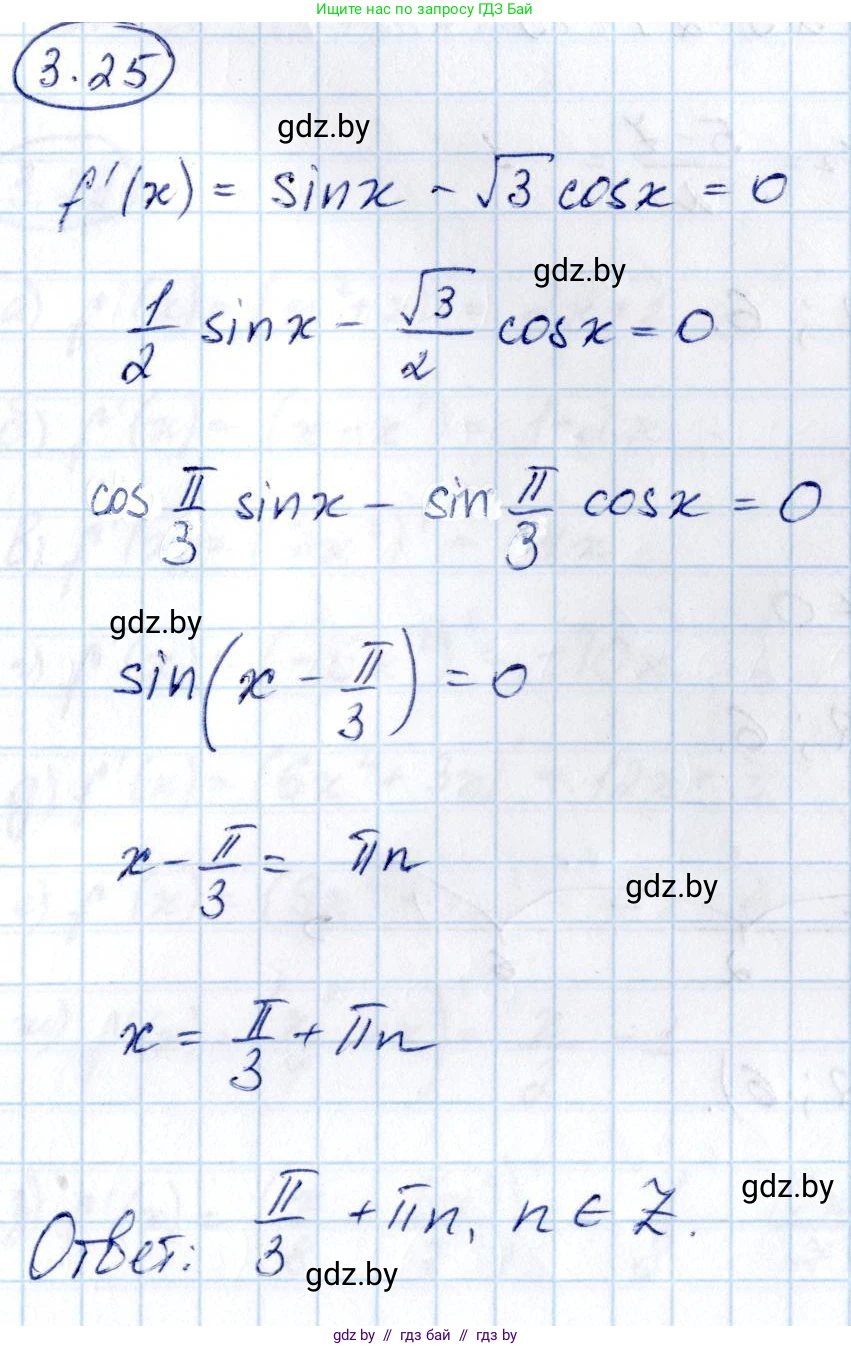 Ищите нас по запросу ГДЗ Бай
3.25
gdz.by
f'(x) = sinx - √3 cosx = 0
gdz.by
1/2 sinx - √3/2 cosx = 0
cos π/3 sinx - sin π/3 cosx = 0
gdz.by
sin(x - π/3) = 0
x - π/3 = πn
gdz.by
x = π/3 + πn
gdz.by
Ответ: π/3 + πn, n ∈ Z.
gdz.by
gdz by // гдз бай // гдз by